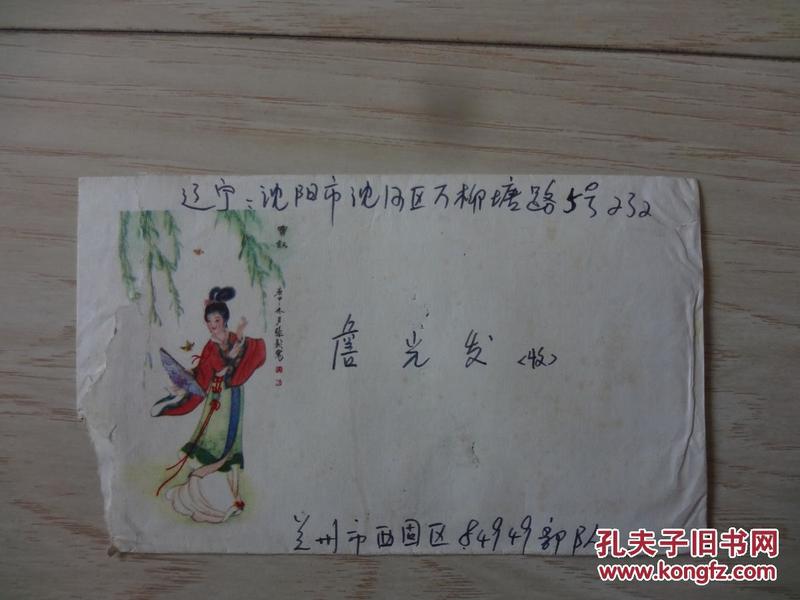 辽宁:沈阳市沈河区万柳塘路5号232
詹光发(收)
兰州市西固区84949部队
孔夫子旧书网
www.kongfz.com